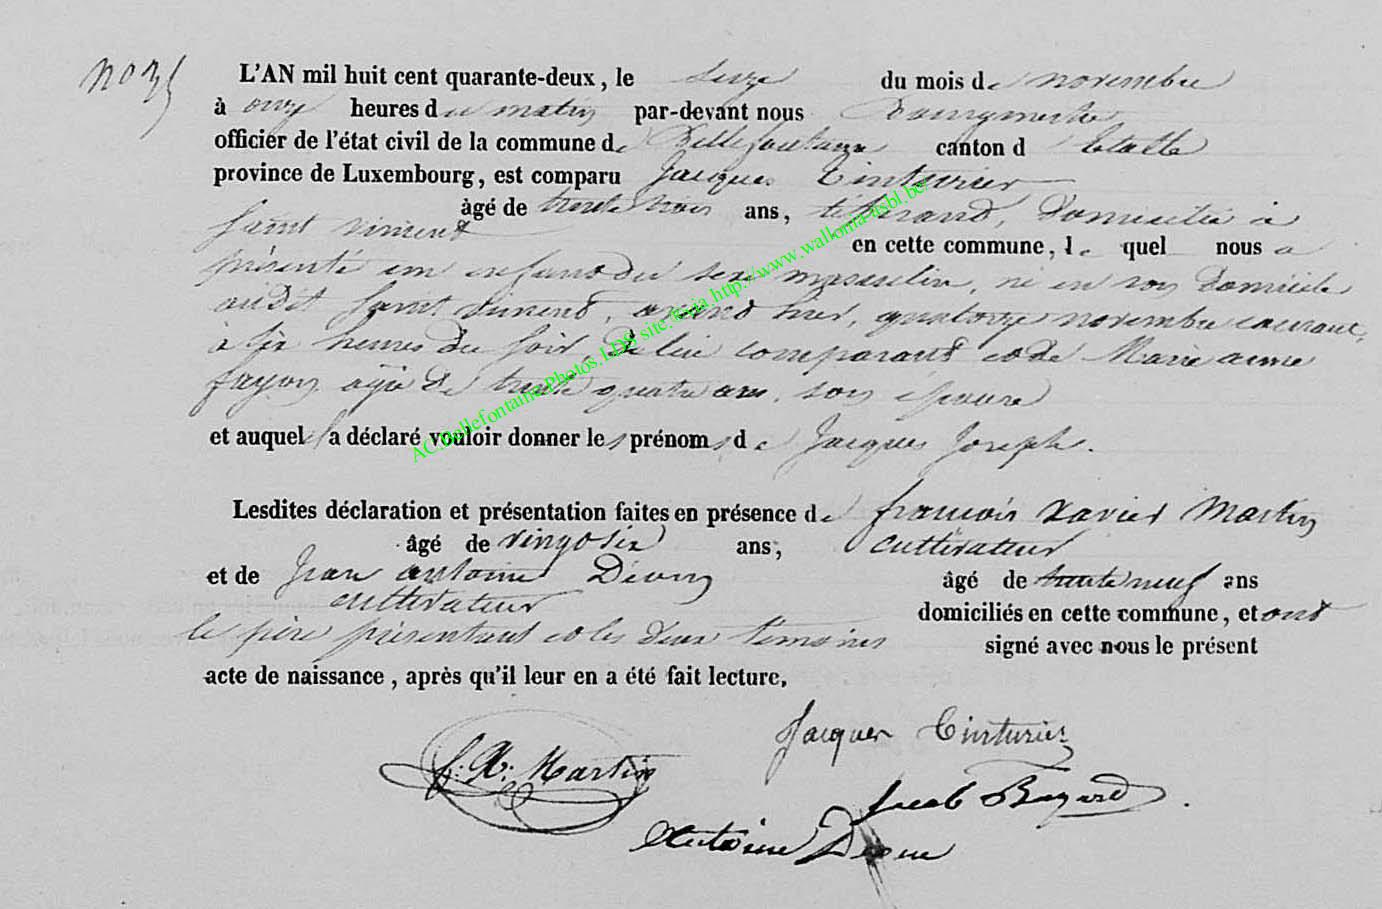 No 35
L'AN mil huit cent quarante-deux, le seize du mois de novembre
à onze heures du matin par-devant nous Bourgmestre
officier de l'état civil de la commune de Bellefontaine canton d'Etalle
province de Luxembourg, est comparu Jacques Tinturier
âgé de trente trois ans, tisserand, domicilié à
Saint vincent en cette commune, lequel nous a
présenté un enfant du sexe masculin, né en son domicile
audit Saint vincent, avant hier, quatorze novembre courant,
à six heures du soir, de lui comparant et de Marie anne
fayon agée de trente quatre ans, son épouse
et auquel il a déclaré vouloir donner les prénoms de Jacques Joseph.
Lesdites déclaration et présentation faites en présence de françois Xavier Martin
âgé de vingt six ans, cultivateur
et de Jean antoine âgé de trente neuf ans
cultivateur domiciliés en cette commune, et ont
le père présentant et les deux témoins signé avec nous le présent
acte de naissance, après qu'il leur en a été fait lecture.
Jacques Tinturier
f. X. Martin
Antoine
AC.Bellefontaine.Photos.LDS site:ftp via http://www.wallonia-asbl.be/